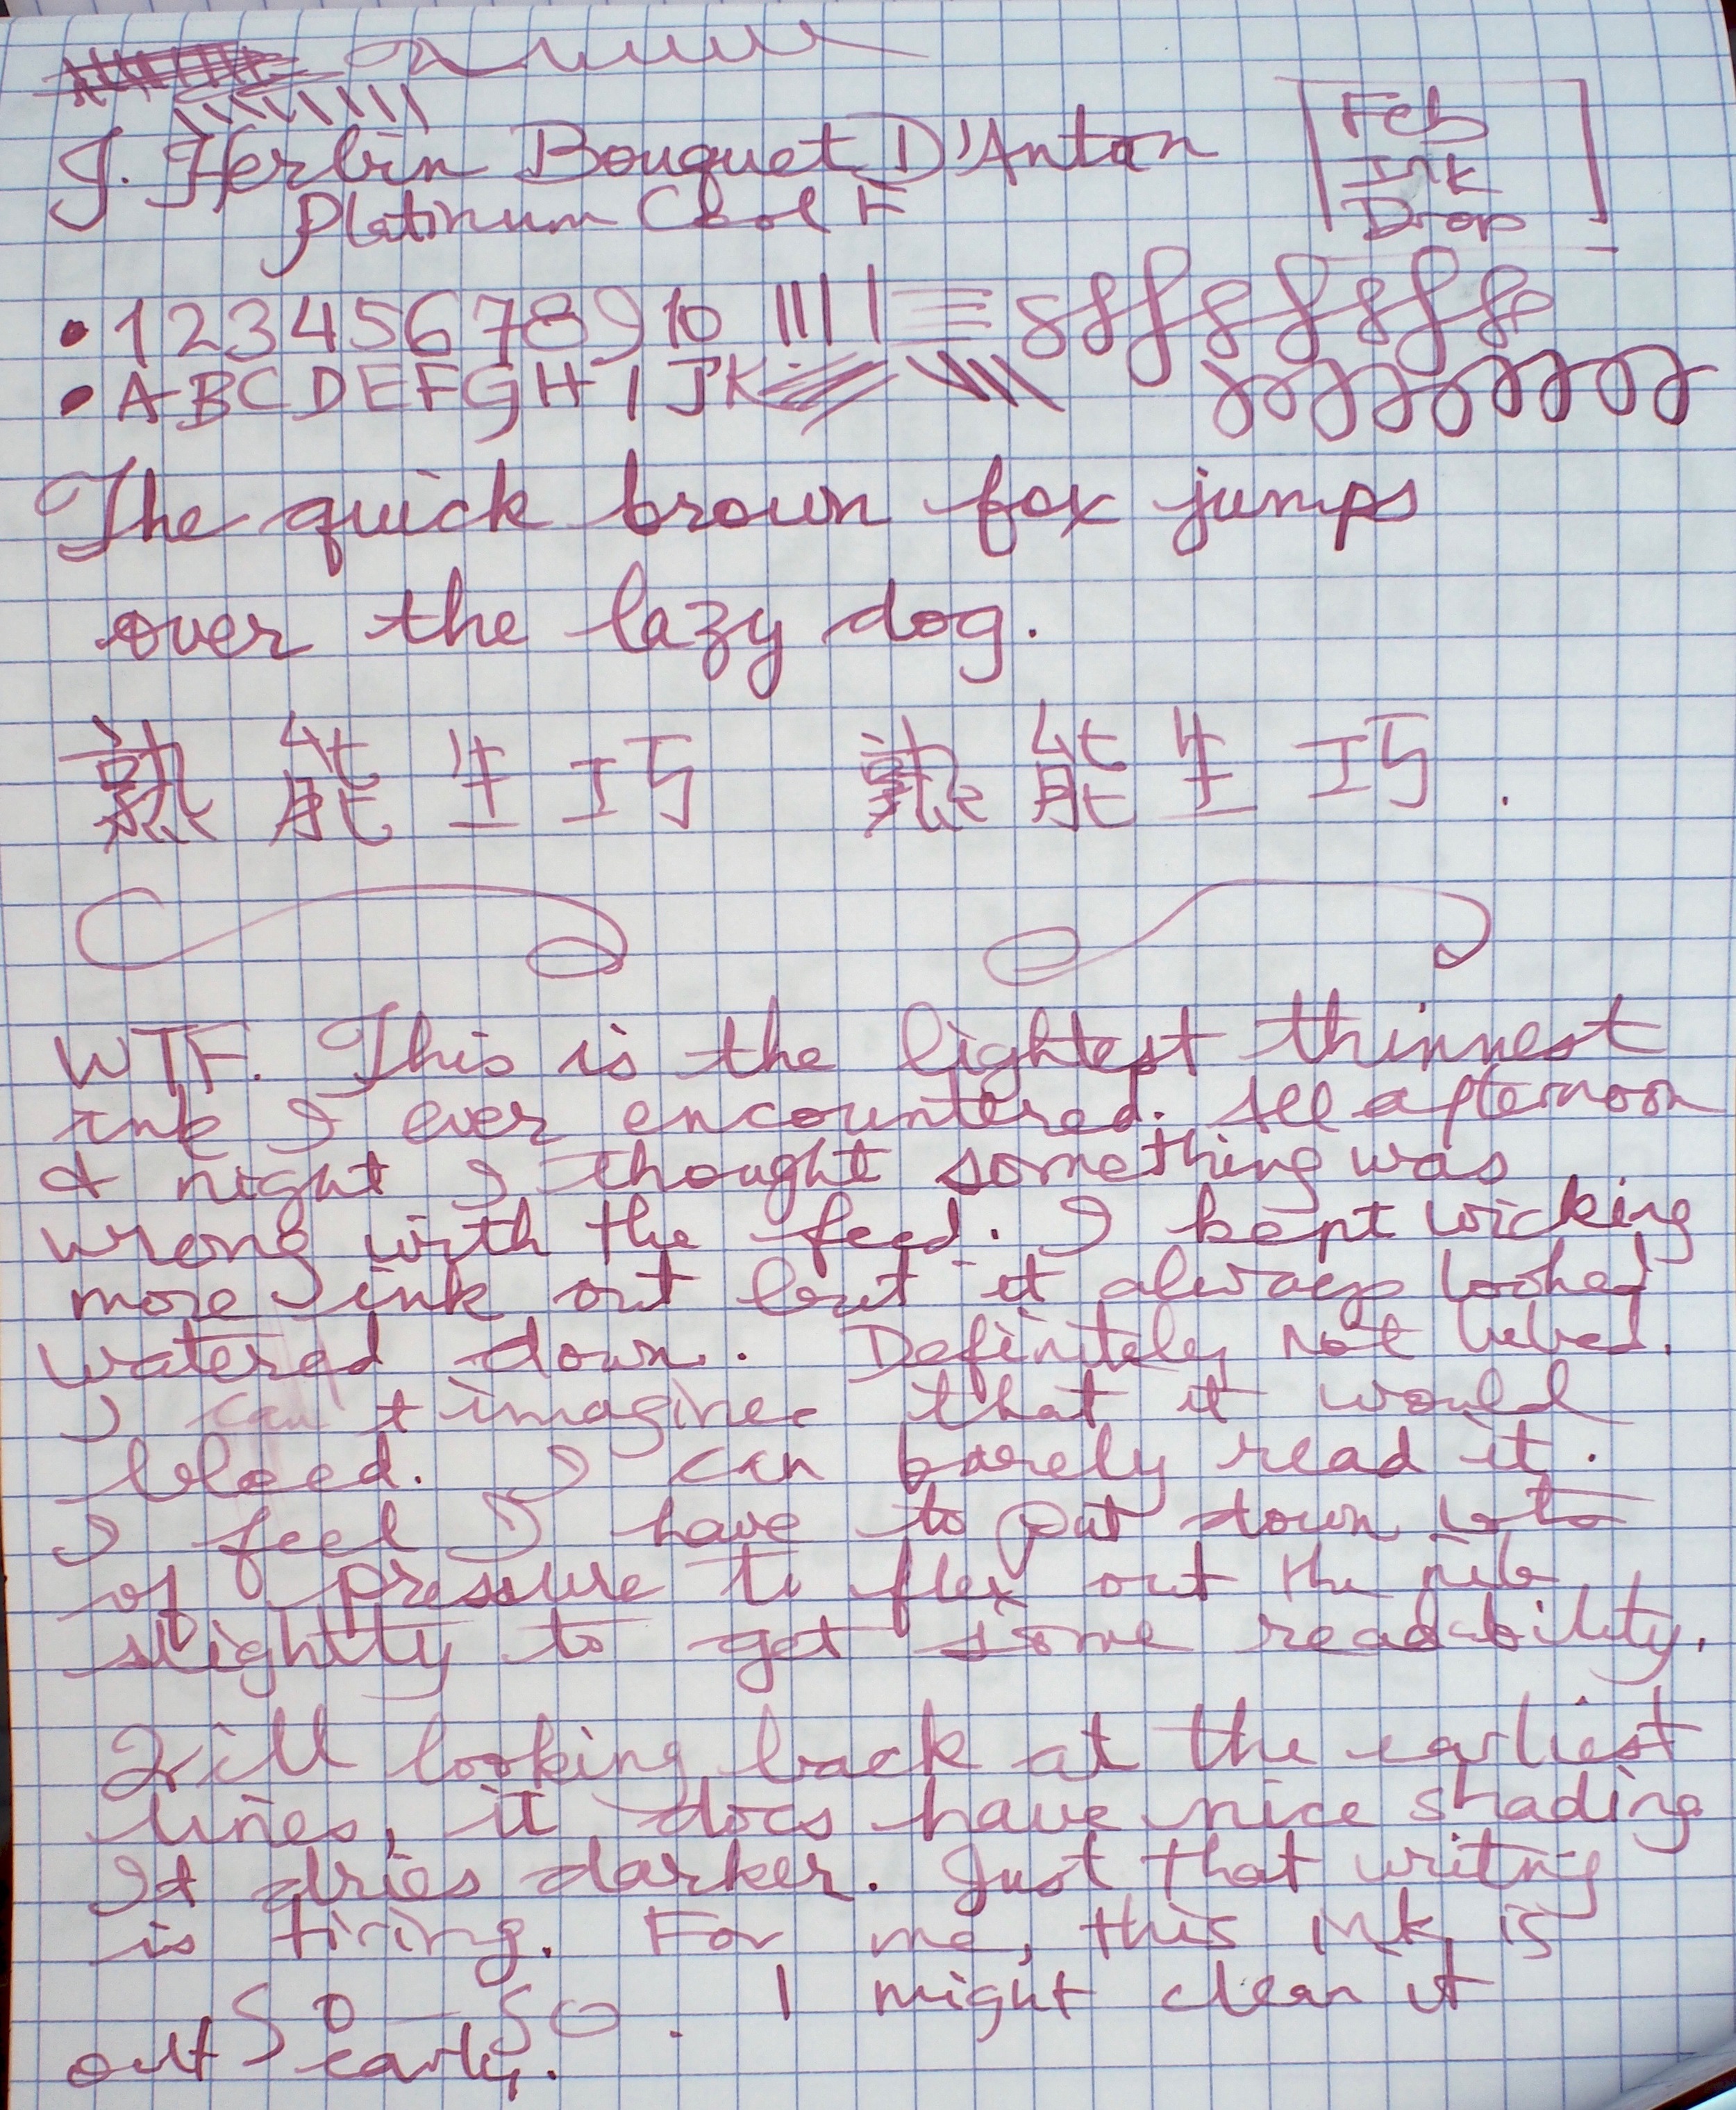 J. Herbin Bouquet D'Antan
Platinum Cool F
Feb
Ink
Drop
1 2 3 4 5 6 7 8 9 10
A B C D E F G H I J K
The quick brown fox jumps
over the lazy dog.
熟能生巧 熟能生巧.
WTF. This is the lightest thinnest
ink I ever encountered. All afternoon
& night I thought something was
wrong with the feed. I kept wicking
more ink out but it always looked
watered down. Definitely not lubed.
I can't imagine that it would
bleed. I can barely read it.
I feel I have to put down lots
of pressure to flex out the nib
slightly to get some readability.
Still looking back at the earliest
lines, it does have nice shading
It dries darker. Just that writing
is tiring. For me, this ink is
so-so. I might clean it
out early.